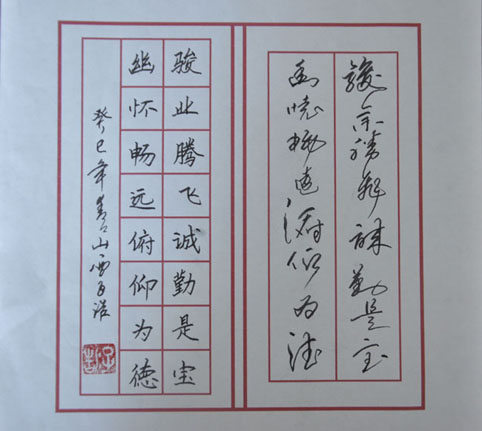 骏業腾飛誠勤是宝
幽怀畅远俯仰为德
骏业腾飞诚勤是宝
幽怀畅远俯仰为德
癸巳年山西